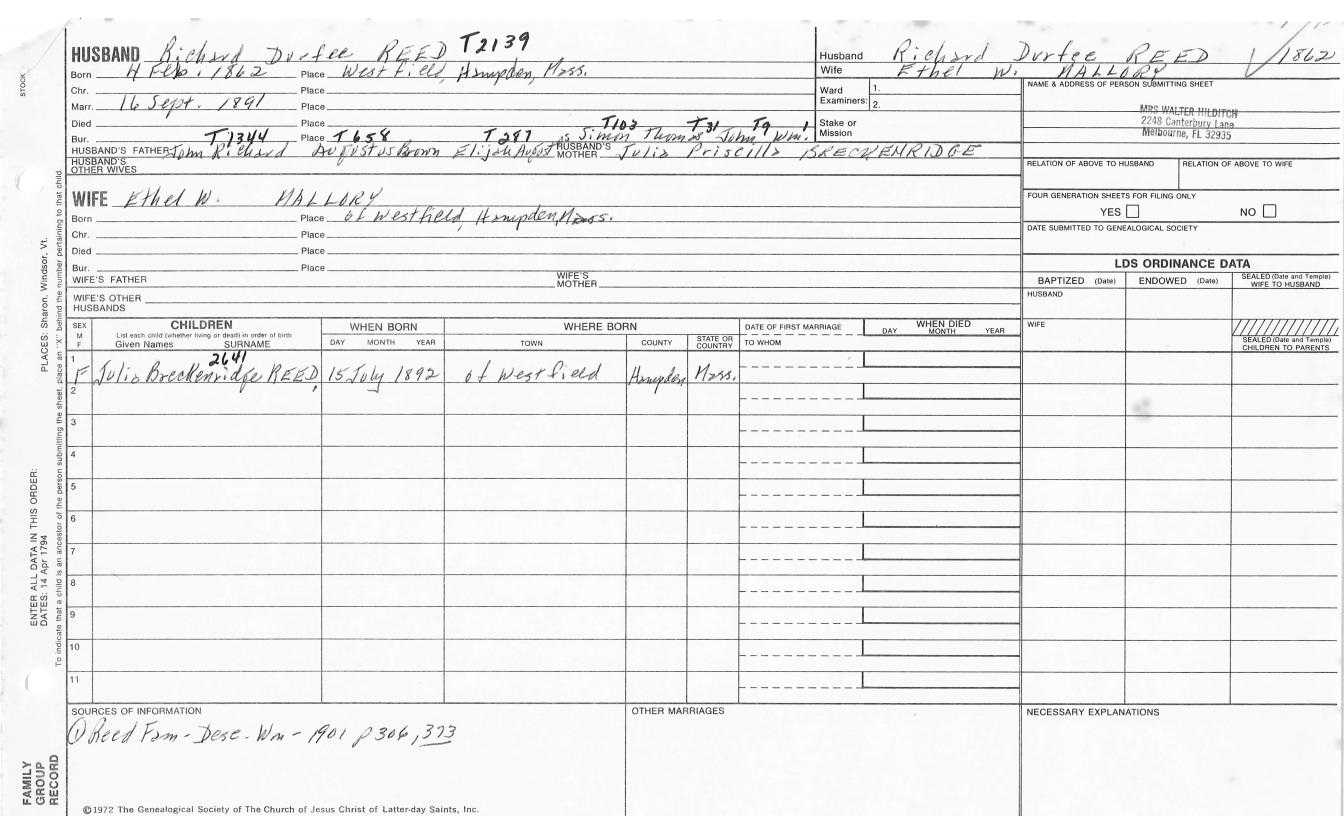 HUSBAND Richard Durfee REED T2139
Born 4 Feb. 1862 Place Westfield, Hampden, Mass.
Chr. Place
Marr. 16 Sept. 1891 Place
Died Place
Bur. T1344 Place T658 T287 T103 T31 T9 1
HUSBAND'S FATHER John Richard Augustus Brown Elijah August us Simon Thomas John, Wm.
HUSBAND'S MOTHER Julia Priscilla BRECKENRIDGE
HUSBAND'S OTHER WIVES
WIFE Ethel W. MALLORY
Born Place of Westfield, Hampden, Mass.
Chr. Place
Died Place
Bur. Place
WIFE'S FATHER WIFE'S MOTHER
WIFE'S OTHER HUSBANDS
Husband Richard Durfee REED 1862
Wife Ethel W. MALLORY
Ward Examiners: 1. 2.
Stake or Mission
NAME & ADDRESS OF PERSON SUBMITTING SHEET
MRS WALTER HILDITCH
2248 Canterbury Lane
Melbourne, FL 32935
RELATION OF ABOVE TO HUSBAND RELATION OF ABOVE TO WIFE
FOUR GENERATION SHEETS FOR FILING ONLY
YES NO
DATE SUBMITTED TO GENEALOGICAL SOCIETY
LDS ORDINANCE DATA
BAPTIZED (Date) ENDOWED (Date) SEALED (Date and Temple) WIFE TO HUSBAND
HUSBAND
WIFE
SEALED (Date and Temple) CHILDREN TO PARENTS
SEX M F
CHILDREN
List each child (whether living or dead) in order of birth
Given Names SURNAME
WHEN BORN
DAY MONTH YEAR
WHERE BORN
TOWN COUNTY STATE OR COUNTRY
DATE OF FIRST MARRIAGE
TO WHOM
WHEN DIED
DAY MONTH YEAR
2641
1 F Julia Breckenridge REED 15 July 1892 of Westfield Hampden Mass.
2
3
4
5
6
7
8
9
10
11
SOURCES OF INFORMATION
① Reed Fam - Desc - Wm - 1901 p 306, 373
OTHER MARRIAGES
NECESSARY EXPLANATIONS
©1972 The Genealogical Society of The Church of Jesus Christ of Latter-day Saints, Inc.
STOCK
PLACES: Sharon, Windsor, Vt.
ENTER ALL DATA IN THIS ORDER:
DATES: 14 Apr 1794
To indicate that a child is an ancestor of the person submitting the sheet, place an "X" behind the number pertaining to that child.
FAMILY GROUP RECORD